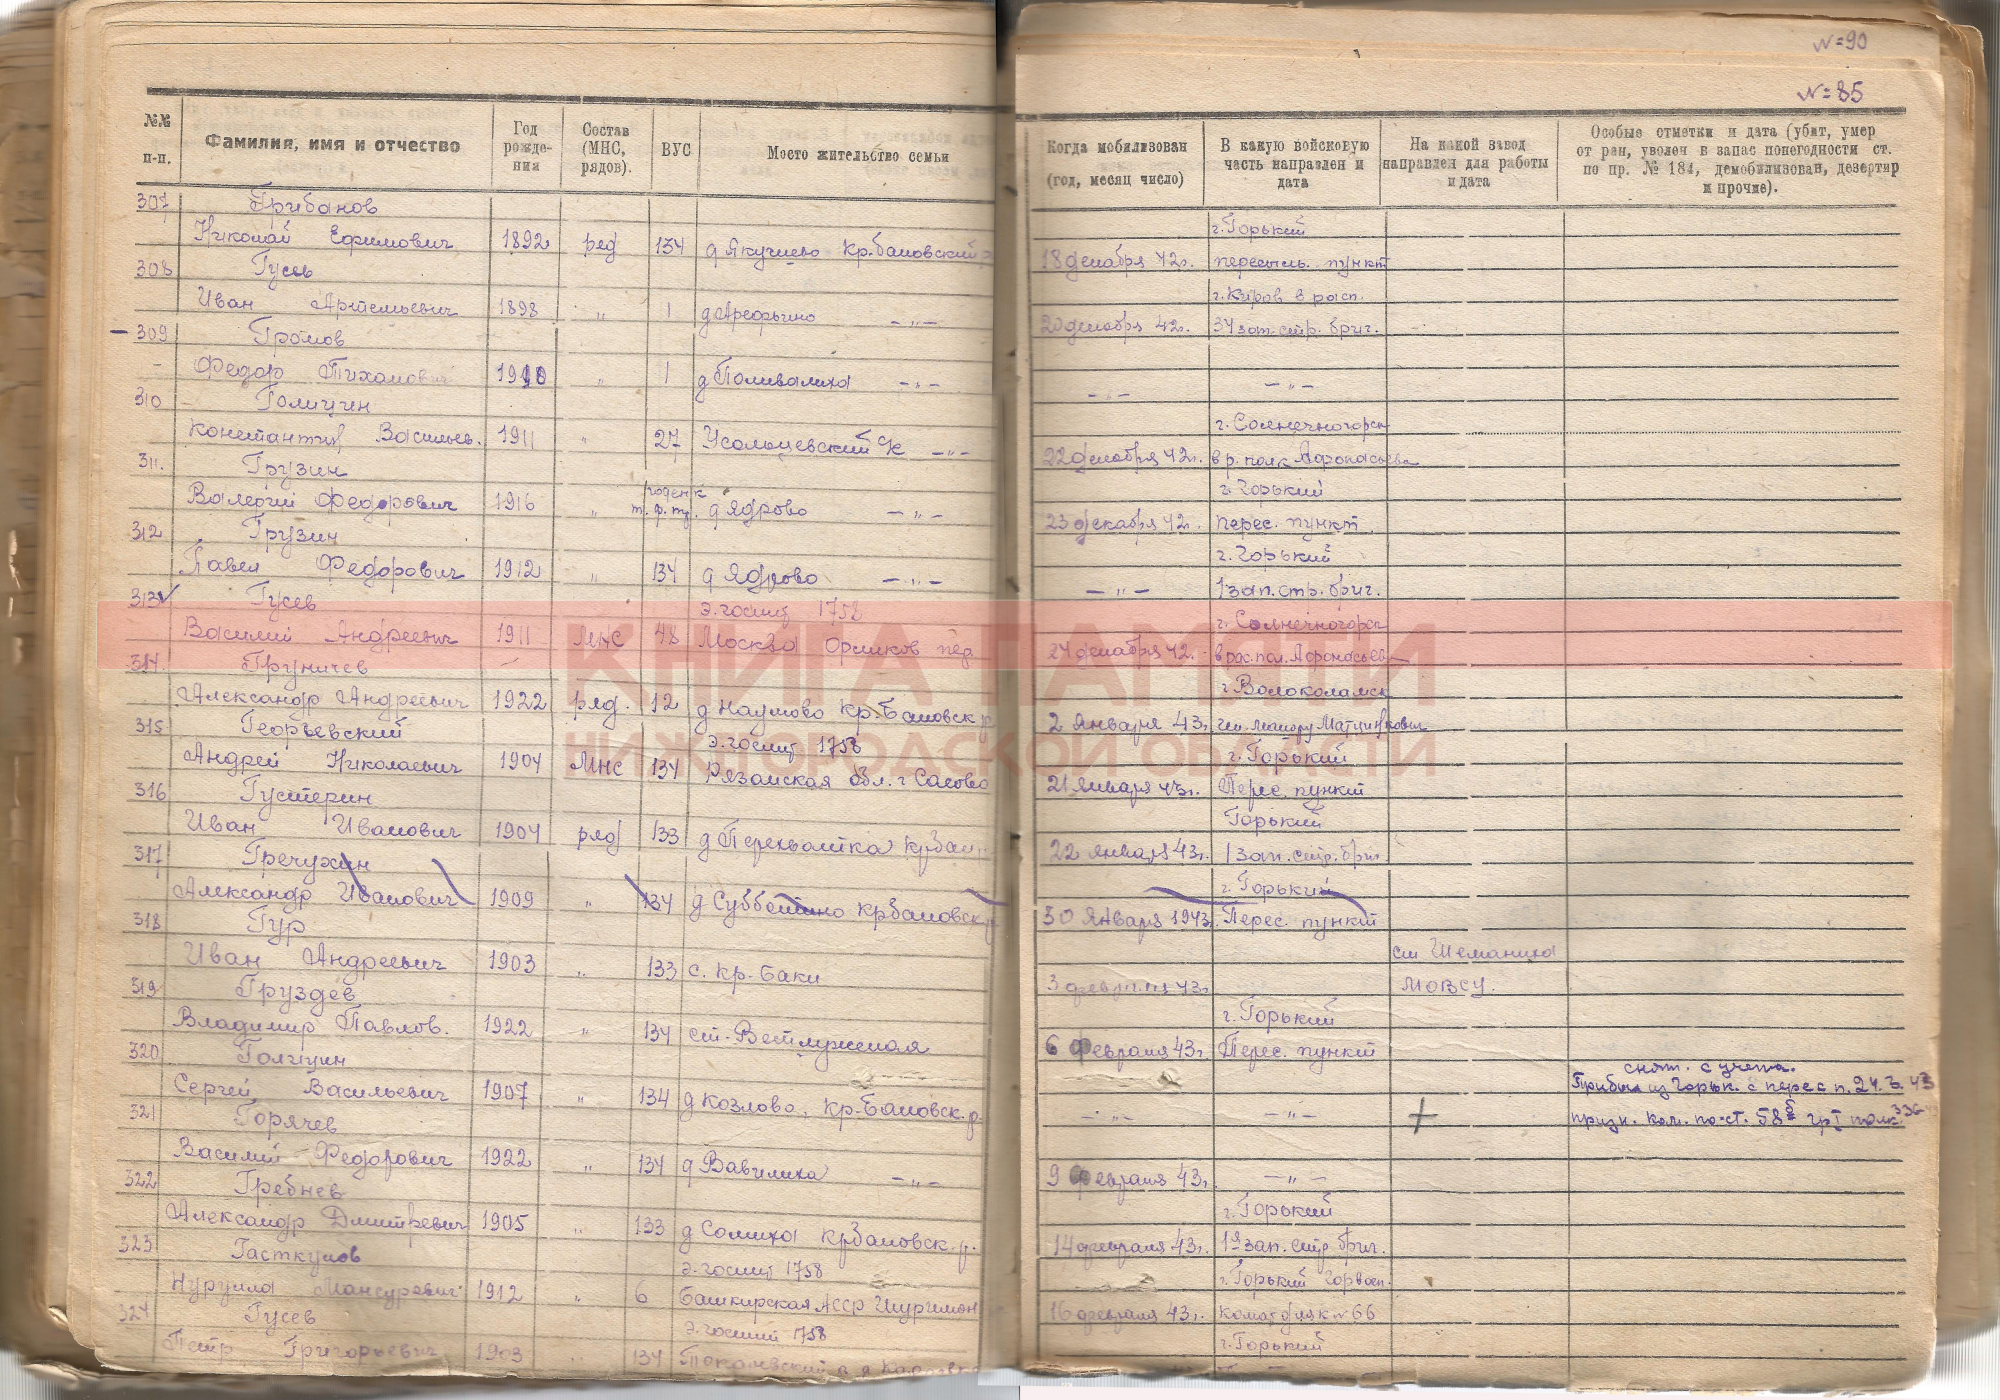 №№ п-п.
Фамилия, имя и отчество
Год рожде-ния
Состав (МНС, рядов).
ВУС
Место жительство семьи
Когда мобилизован (год, месяц число)
В какую войсковую часть направлен и дата
На какой завод направлен для работы и дата
Особые отметки и дата (убит, умер от ран, уволен в запас по негодности ст. по пр. № 184, демобилизован, дезертир и прочие).
N=90
N=85
307 Грибанов
г. Горький
Николай Ефимович 1892 ряд 134 д Якушево Кр.баковский р
18 декабря 42г. пересыль. пункт
308 Гусев
г. Киров в расп.
Иван Артемьевич 1898 " 1 д Арефьино -"-
20 декабря 42г. 34 зап. стр. бриг.
309 Громов
Федор Тихонович 1910 " 1 д Поливалиха -"-
-"- -"-
310 Голицин
г. Солнечногорск
Константин Васильев. 1911 " 27 Усольцевский с/к -"-
22 декабря 42г. в р. полк Афонасьева
311. Грузин
г. Горький
Валегий Федорович 1916 " годен к т. ф. тр. д Ядрово -"-
23 декабря 42г. перес. пункт
312 Грузин
г. Горький
Павел Федорович 1912 " 134 д Ядрово -"-
-"- 1 зап. стр. бриг.
313 Гусев э. госпит 1758
г. Солнечногорск
Василий Андреевич 1911 МНС 48 Москва Орликов пер
24 декабря 42г. в рас. пол. Афонасьев
314. Груничев
г Волоколамск
Александр Андреевич 1922 ряд. 12 д Наумово Кр.-Баковск. р
2 Января 43г. ген. майору
315 Георгевский э. госпит 1758
г. Горький
Андрей Николаевич 1904 МНС 134 Рязанская обл. г Сасово
21 Января 43г. Перес. пункт
316 Густерин
Горький
Иван Иванович 1904 ряд 133 д Перехватка крбак
22 января 43г. 1 зап. стр. бриг
317 Гречухин
г. Горький
Александр Иванович 1909 " 134 д Субботино крбаковск р
30 Января 1943г. Перес. пункт
318 Гур
ст Шеманиха
Иван Андреевич 1903 " 133 с. Кр-Баки
3 февраля 43г. МОВСУ.
319 Груздев
г. Горький
Владимир Павлов. 1922 " 134 ст. Ветлужская
6 Февраля 43г. Перес. пункт
320 Голицин
снят. с учета.
Прибыл из Горьк. с перес п. 24.3.43
Сергей Васильевич 1907 " 134 д Козлово, Кр-Баковск. р.
-"- -"- + призн. ком. по ст. 58б гр I 336
321 Горячев
Василий Федорович 1922 " 134 д Вавилиха -"-
9 Февраля 43г. -"-
322 Гребнев
г. Горький
Александр Дмитревич 1905 " 133 д Солиха Крбаковск. р.
14 февраля 43г. 1й зап. стр бриг.
323 Гасткулов э. госпит 1758
г. Горький
Нурулла Мансурович 1912 " 6 Башкирская АССР
16 февраля 43г. 66
324 Гусев э. госпит 1758
г. Горький
Петр Григорьевич 1903 134
КНИГА ПАМЯТИ
НИЖГОРОДСКОЙ ОБЛАСТИ